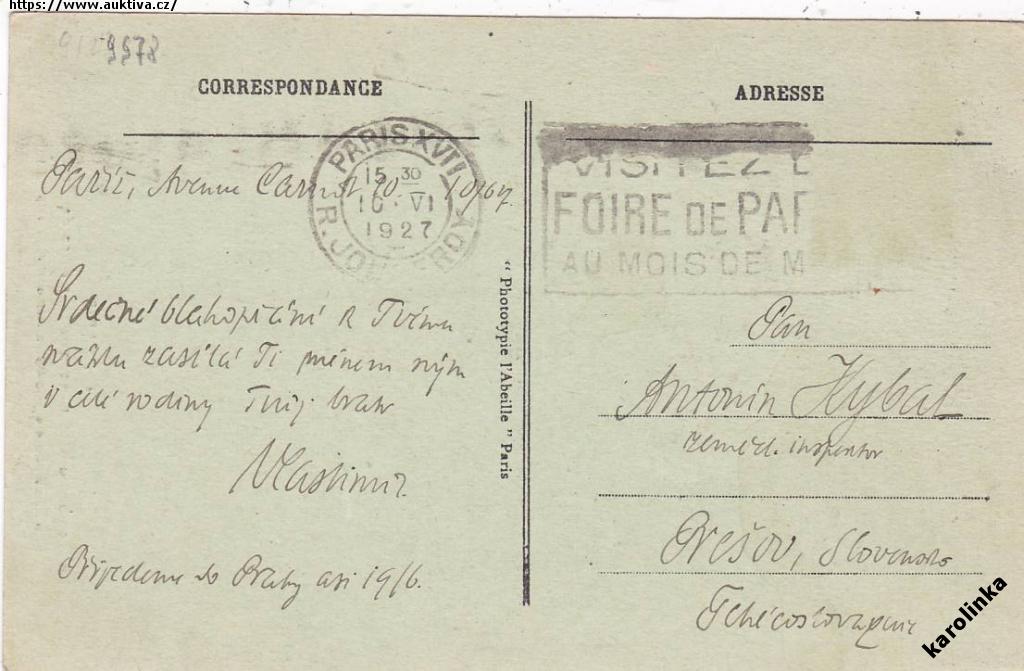 https://www.auktiva.cz/
9578
CORRESPONDANCE
Paříž, Avenue Carnot 10. 10/6 27.
PARIS XVII
15 30
10 · VI
1927
R. JOUFFROY
Srdečné blahopřání k Tvému
svátku zasílá Ti jménem svým
i celé rodiny Tvůj bratr
Vlastimil.
Přijedeme do Prahy asi 19/6.
" Phototypie l'Abeille " Paris
ADRESSE
VISITEZ L
FOIRE DE PAR
AU MOIS DE M
Pan
Antonín Kybal
zeměd. inspektor
Prešov, Slovensko
Tchécoslovaquie
karolinka